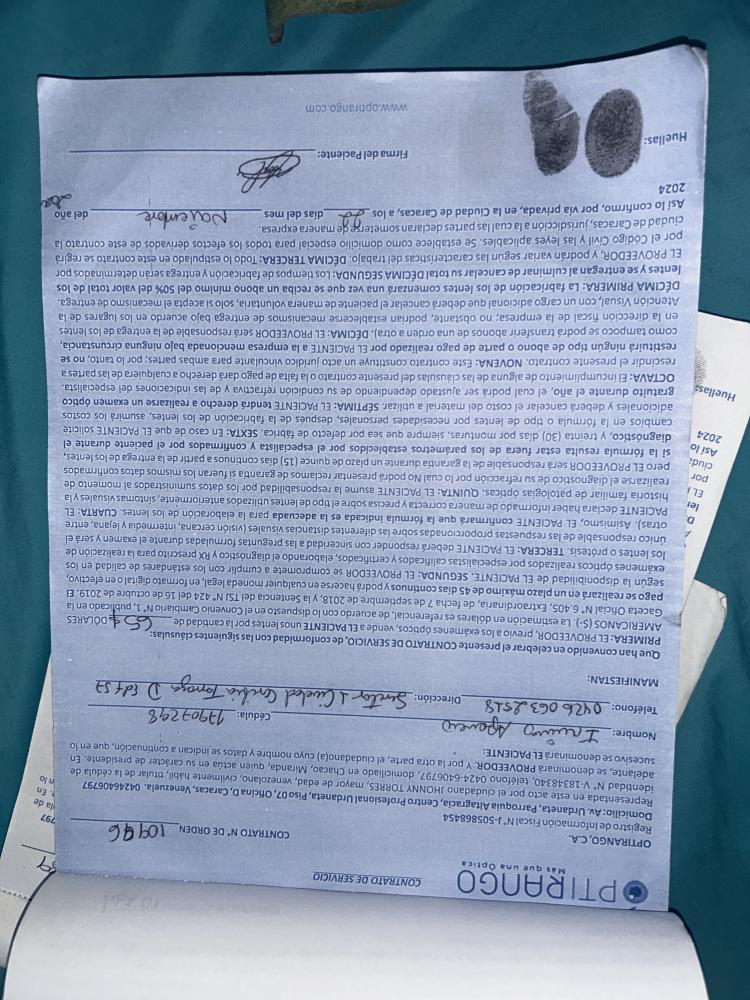 OPTIRANGO
Más que una Optica
CONTRATO DE SERVICIO
CONTRATO N° DE ORDEN 10996
OPTIRANGO, C.A.
Registro de Información Fiscal N° J-505868454
Domicilio: Av. Urdaneta, Parroquia Altagracia, Centro Profesional Urdaneta, Piso 07, Oficina D, Caracas, Venezuela. 04246406797
Representada en este acto por el ciudadano JHONNY TORRES, mayor de edad, venezolano, civilmente hábil, titular de la cédula de
identidad N° V-18348340, teléfono 0424-6406797, domiciliado en Chacao, Miranda, quien actúa en su carácter de presidente. En
adelante, se denominará PROVEEDOR. Y por la otra parte, el ciudadano(a) cuyo nombre y datos se indica a continuación, que en lo
sucesivo se denominará EL PACIENTE:
Nombre: Aparicio Cédula: 17907298
Teléfono: 0426 063 2518 Dirección: Sector 1 Ciudad Caribia Terraza D Edf 57
MANIFIESTAN:
Que han convenido en celebrar el presente CONTRATO DE SERVICIO, de conformidad con las siguientes cláusulas:
PRIMERA: EL PROVEEDOR, previo a los exámenes ópticos, vende a EL PACIENTE unos lentes por la cantidad de 65$ DÓLARES
AMERICANOS ($-). La estimación en dólares es referencial, de acuerdo con lo dispuesto en el Convenio Cambiario N° 1, publicado en la
Gaceta Oficial N° 6.405, Extraordinaria, de fecha 7 de septiembre de 2018, y la Sentencia del TSJ N° 424 del 16 de octubre de 2019. El
pago se realizará en un plazo máximo de 45 días continuos y podrá hacerse en cualquier moneda legal, en formato digital o en efectivo,
según la disponibilidad de EL PACIENTE. SEGUNDA: EL PROVEEDOR se compromete a cumplir con los estándares de calidad en los
exámenes ópticos realizados por especialistas calificados y certificados, elaborando el diagnóstico y RX prescrito para la realización de
los lentes o prótesis. TERCERA: EL PACIENTE deberá responder con sinceridad a las preguntas formuladas durante el examen y será el
único responsable de las respuestas proporcionadas sobre las diferentes distancias visuales (visión cercana, intermedia y lejana, entre
otras). Asimismo, EL PACIENTE confirmará que la fórmula indicada es la adecuada para la elaboración de los lentes. CUARTA: EL
PACIENTE declara haber informado de manera correcta y precisa sobre el tipo de lentes utilizados anteriormente, síntomas visuales y la
historia familiar de patologías ópticas. QUINTA: EL PACIENTE asume la responsabilidad por los datos suministrados al momento de
realizarse el diagnóstico de su refracción por lo cual No podrá presentar reclamos de garantía si fueran los mismos datos confirmados
pero EL PROVEEDOR será responsable de la garantía durante un plazo de quince (15) días continuos a partir de la entrega de los lentes,
si la fórmula resulta estar fuera de los parámetros establecidos por el especialista y confirmados por el paciente durante el
diagnóstico, y treinta (30) días por monturas, siempre que sea por defecto de fábrica. SEXTA: En caso de que EL PACIENTE solicite
cambios en la fórmula o tipo de lentes por necesidades personales, después de la fabricación de los lentes, asumirá los costos
adicionales y deberá cancelar el costo del material a utilizar. SÉPTIMA: EL PACIENTE tendrá derecho a realizarse un examen óptico
gratuito durante el año, el cual podrá ser ajustado dependiendo de su condición refractiva y de las indicaciones del especialista.
OCTAVA: El incumplimiento de alguna de las cláusulas del presente contrato o la falta de pago dará derecho a cualquiera de las partes a
rescindir el presente contrato. NOVENA: Este contrato constituye un acto jurídico vinculante para ambas partes; por lo tanto, no se
restituirá ningún tipo de abono o parte de pago realizado por EL PACIENTE a la empresa mencionada bajo ninguna circunstancia,
como tampoco se podrá transferir abonos de una orden a otra). DÉCIMA: EL PROVEEDOR será responsable de la entrega de los lentes
en la dirección fiscal de la empresa; no obstante, podrían establecerse mecanismos de entrega bajo acuerdo en los lugares de la
Atención Visual, con un cargo adicional que deberá cancelar el paciente de manera voluntaria, solo si acepta el mecanismo de entrega.
DÉCIMA PRIMERA: La fabricación de los lentes comenzará una vez que se reciba un abono mínimo del 50% del valor total de los
lentes y se entregan al culminar de cancelar su total DÉCIMA SEGUNDA: Los tiempos de fabricación y entrega serán determinados por
EL PROVEEDOR, y podrán variar según las características del trabajo. DÉCIMA TERCERA: Todo lo estipulado en este contrato se regirá
por el Código Civil y las leyes aplicables. Se establece como domicilio especial para todos los efectos derivados de este contrato la
ciudad de Caracas, jurisdicción a la cual las partes declaran someterse de manera expresa.
Así lo confirmo, por vía privada, en la Ciudad de Caracas, a los 22 días del mes Noviembre del año
2024
Firma del Paciente:
Huellas:
www.optirango.com
Huellas:
2024
Así lo
ciud
por
EL P